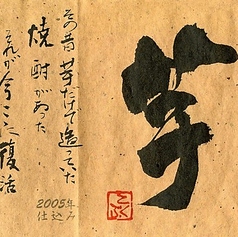 芋
その昔 芋だけで造ってた
焼酎があった
それが今ここに復活
2005年
仕込み